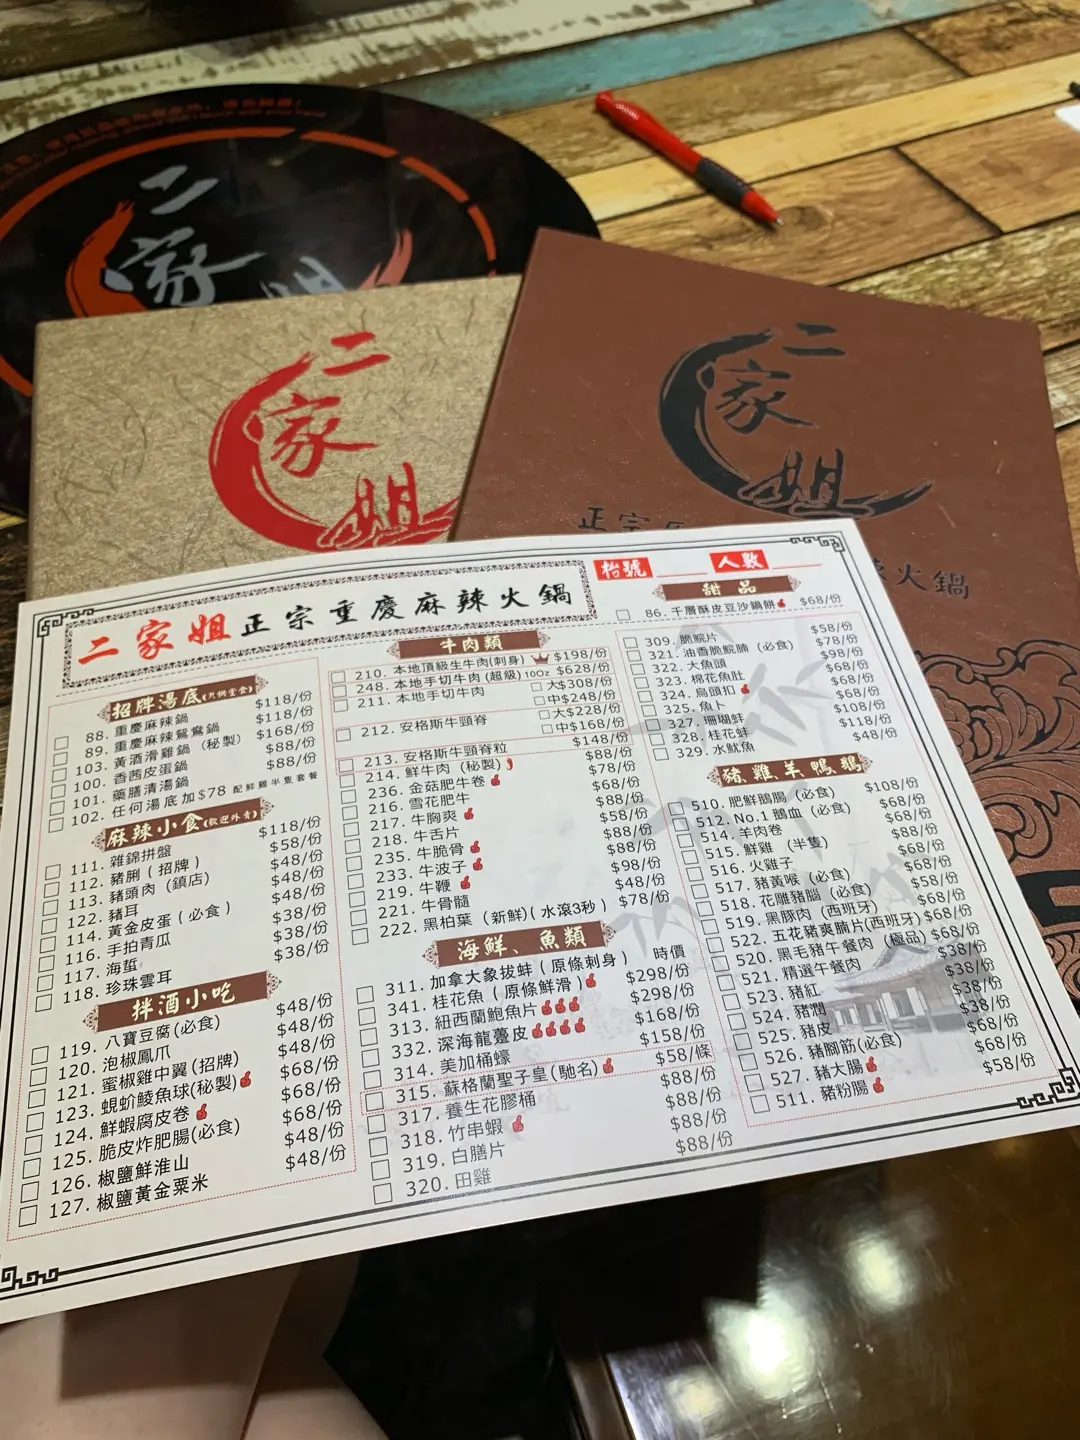 二家姐
二家姐
二家姐
正宗
辣火鍋
二家姐正宗重慶麻辣火鍋
枱號
人數
招牌湯底(只供堂食)
88. 重慶麻辣鍋 $118/份
89. 重慶麻辣鴛鴦鍋 $118/份
103. 黃酒滑雞鍋 (秘製) $168/份
100. 香茜皮蛋鍋 $88/份
101. 藥膳清湯鍋 $88/份
102. 任何湯底加$78 配鮮雞半隻套餐
麻辣小食(歡迎外賣)
111. 雜錦拼盤 $118/份
112. 豬脷 (招牌) $58/份
113. 豬頭肉 (鎮店) $48/份
122. 豬耳 $48/份
114. 黃金皮蛋 (必食) $48/份
116. 手拍青瓜 $38/份
117. 海蜇 $38/份
118. 珍珠雲耳 $38/份
拌酒小吃
119. 八寶豆腐(必食) $48/份
120. 泡椒鳳爪 $48/份
121. 蜜椒雞中翼(招牌) $48/份
123. 蜆蚧鯪魚球(秘製) $68/份
124. 鮮蝦腐皮卷 $68/份
125. 脆皮炸肥腸(必食) $68/份
126. 椒鹽鮮淮山 $48/份
127. 椒鹽黃金粟米 $48/份
牛肉類
210. 本地頂級生牛肉(刺身) $198/份
248. 本地手切牛肉 (超級) 10oz $628/份
211. 本地手切牛肉 大$308/份
中$248/份
212. 安格斯牛頸脊 大$228/份
中$168/份
213. 安格斯牛頸脊粒 $148/份
214. 鮮牛肉 (秘製) $88/份
236. 金菇肥牛卷 $78/份
216. 雪花肥牛 $68/份
217. 牛胸爽 $88/份
218. 牛舌片 $58/份
235. 牛脆骨 $88/份
233. 牛波子 $88/份
219. 牛鞭 $98/份
221. 牛骨髓 $48/份
222. 黑柏葉 (新鮮)(水滾3秒) $78/份
海鮮、魚類
311. 加拿大象拔蚌 (原條刺身) 時價
341. 桂花魚 (原條鮮滑) $298/份
313. 紐西蘭鮑魚片 $298/份
332. 深海龍躉皮 $168/份
314. 美加桶蠔 $158/份
315. 蘇格蘭聖子皇(馳名) $58/條
317. 養生花膠桶 $88/份
318. 竹串蝦 $88/份
319. 白膳片 $88/份
320. 田雞 $88/份
甜品
86. 千層酥皮豆沙鍋餅 $68/份
309. 脆鯇片 $58/份
321. 油香脆鯇腩 (必食) $78/份
322. 大魚頭 $98/份
323. 棉花魚肚 $68/份
324. 烏頭扣 $68/份
325. 魚卜 $68/份
327. 珊瑚蚌 $108/份
328. 桂花蚌 $118/份
329. 水魷魚 $48/份
豬、雞、羊、鴨、鵝
510. 肥鮮鵝腸 (必食) $108/份
512. No.1 鵝血 (必食) $68/份
514. 羊肉卷 $68/份
515. 鮮雞 (半隻) $88/份
516. 火雞子 $68/份
517. 豬黃喉 (必食) $68/份
518. 花雕豬腦 (必食) $58/份
519. 黑豚肉 (西班牙) $68/份
522. 五花豬爽腩片(西班牙) $68/份
520. 黑毛豬午餐肉 (極品) $68/份
521. 精選午餐肉 $38/份
523. 豬紅 $38/份
524. 豬潤 $38/份
525. 豬皮 $38/份
526. 豬腳筋(必食) $68/份
527. 豬大腸 $68/份
511. 豬粉腸 $58/份